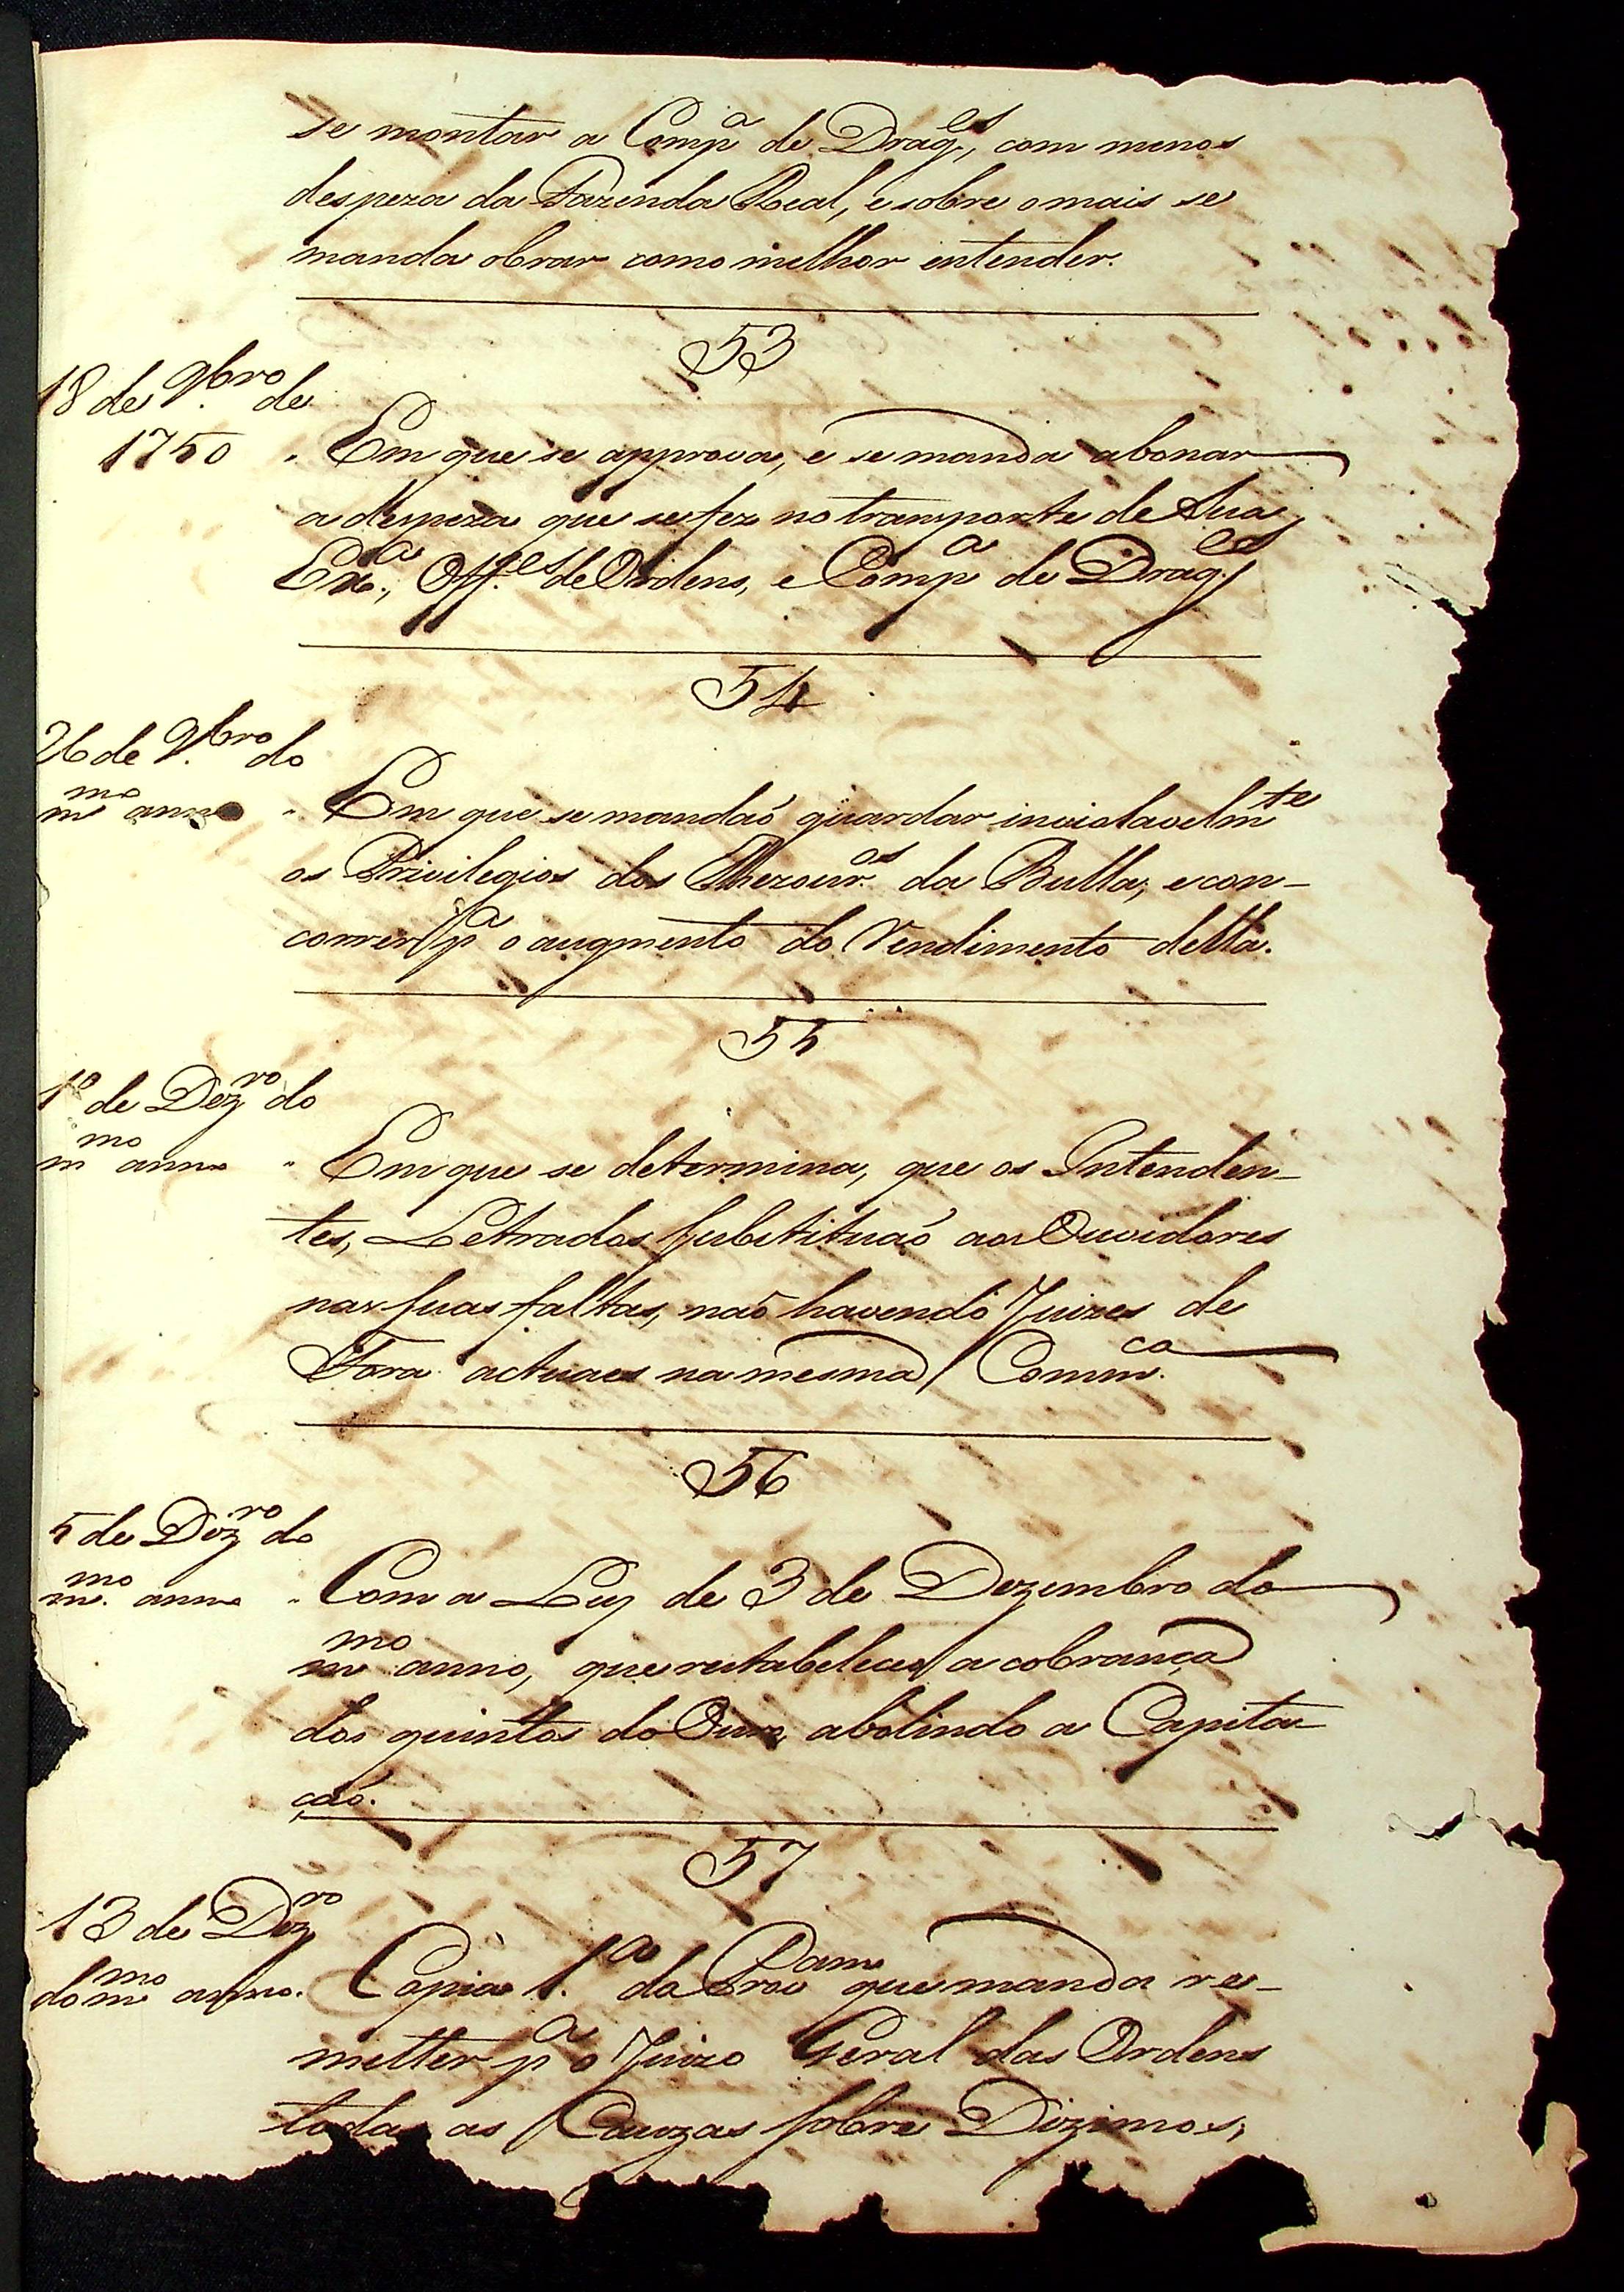 se montar a Comp.ª de Drag.es, com menos
despeza da Fazenda Real, e sobre o mais se
manda obrar como milhor entender.
53
18 de 9.bro de
1750 " Em que se approva, e se manda abonar
a despeza que se fez no transporte de Sua
Ex.ª, Off.es de Ordens, e Comp.ª de Drag.es
54
26 de 9.bro do
m.mo anno " Em que se mandaó guardar inviolavelm.te
os Privilegios dos Thezour.os da Bulla, e con-
correr p.ª o augmento do Rendimento della.
55
1º de Dez.ro do
m.mo anno " Em que se determina, que os Intenden-
tes, Letrados substituaó aos Ouvidores
nas suas faltas, naó havendo Juizes de
Fora actuaes na mesma Comm.ca
56
5 de Dez.ro do
m.mo anno " Com a Ley de 3 de Dezembro do
m.mo anno, que restabelece a cobrança
dos quintos do Ouro, abolindo a Capita
çaó.
57
13 de Dez.ro
do m.mo anno. Copia 1.ª da Prov.am que manda re-
metter p.ª o Juizo Geral das Ordens
todas as Cauzas sobre Dizimos,